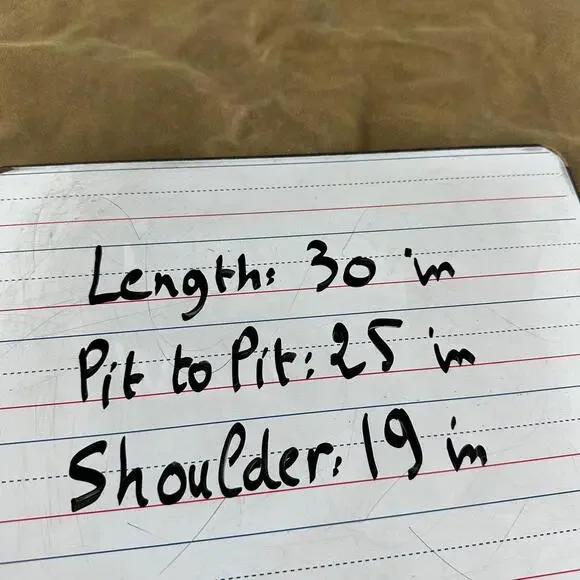 Length: 30 in
Pit to Pit: 25 in
Shoulder: 19 in